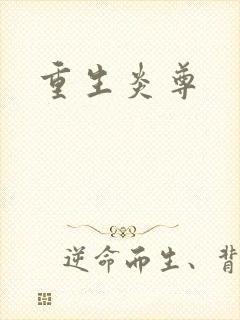 重生炎尊
逆命而生、背